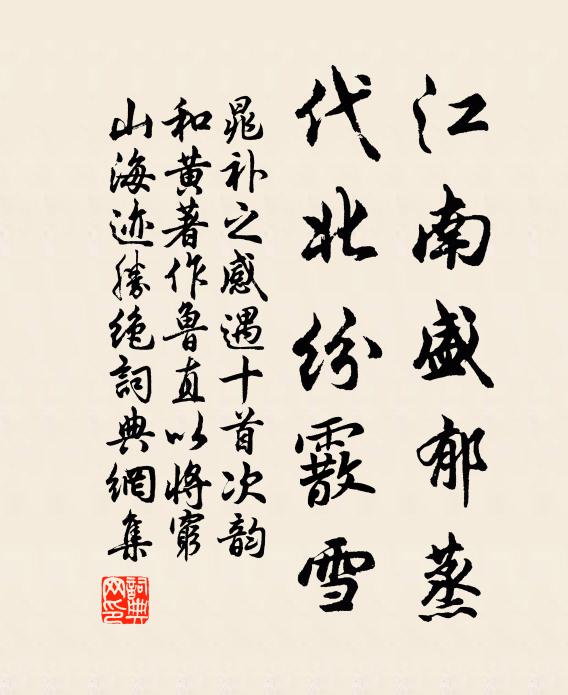 江南盛郁蒸
代北纷霰雪
晁补之感遇十首次韵
和黄著作鲁直以将穷
山海迹胜绝詞典網集
詞典
网印